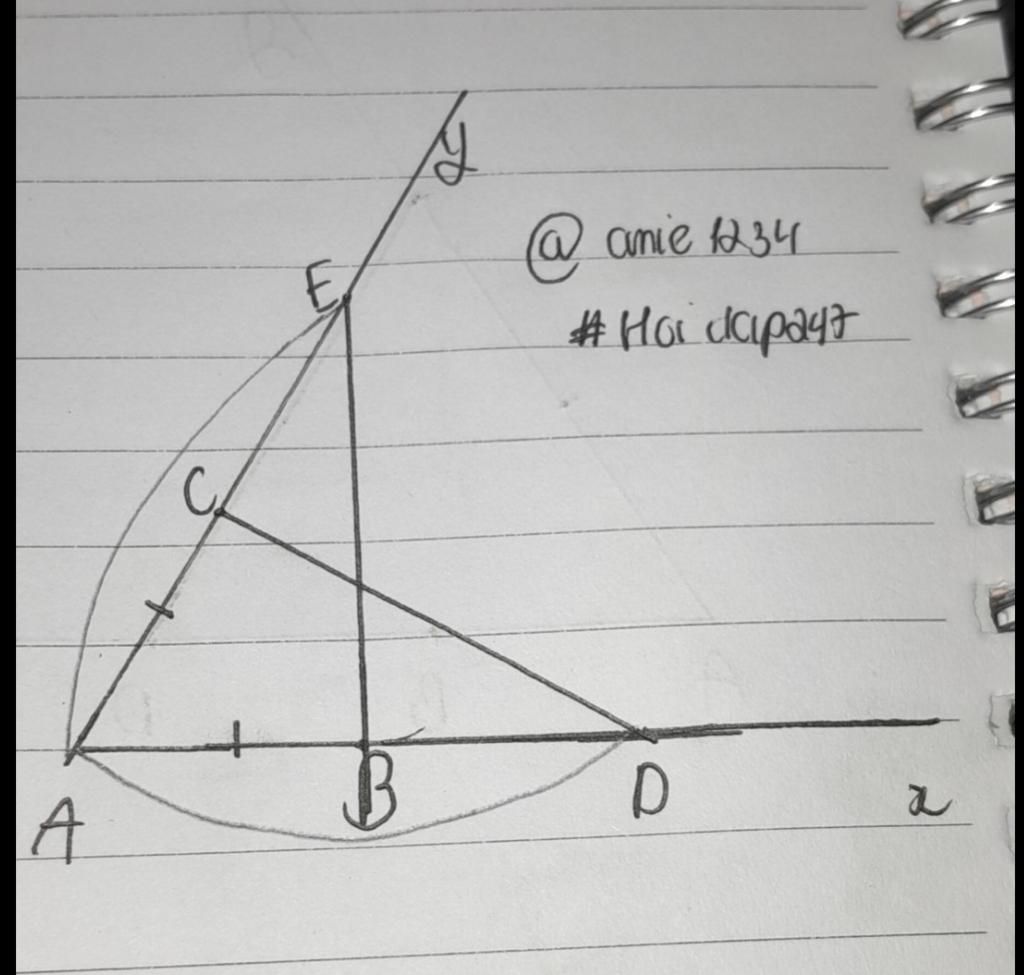 y
E
@ amie 1234
# Hoi dap247
C
A
B
D
x